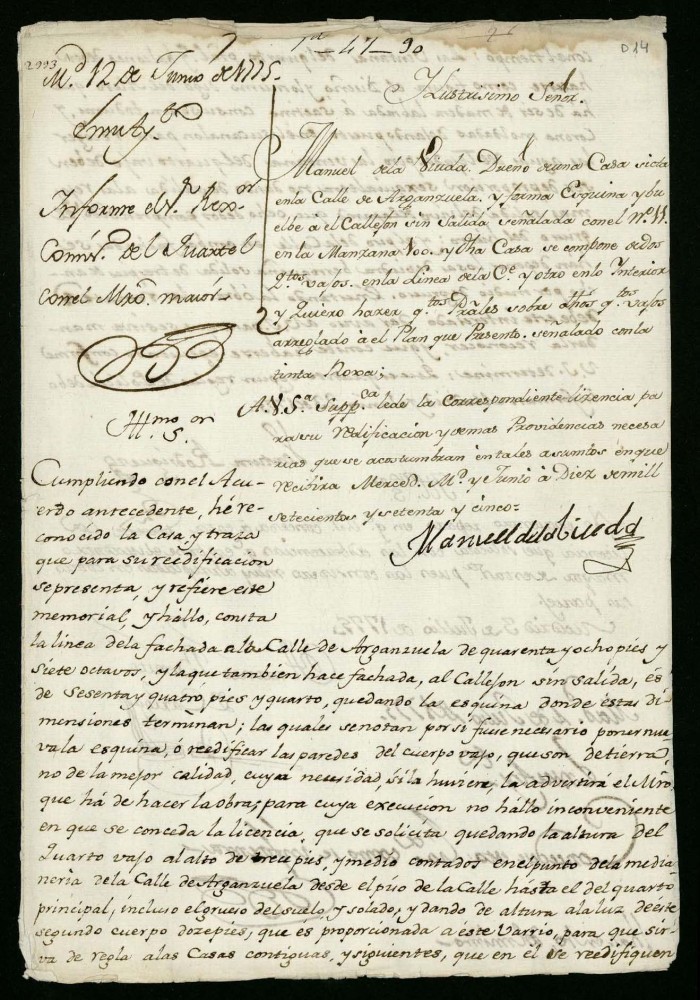 1ª-47-90
D14
M.d 12 de Junio de 1775.
Informe el S.r Rex.or
Comis.o del Quartel
con el Mro. mayor
Ylustrisimo Señor.
Manuel de la Viuda. Dueño de una Casa sicta
en la Calle de Arganzuela, y forma Esquina y bu
elbe à el Callejon sin salida señalada con el Nº 11.
en la Manzana 100. y dha Casa se compone de dos
q.tos vajos. en la Linea de la C.e y otro en lo Interior
y Quiero hazer q.tos Prâles sobre dhos q.tos vajos
arreglado à el Plan que Presento. señalado con la
tinta Roxa;
A V.S.a Supp.ca le de la Correspondiente lizencia pa
ra su redificacion y demas Providencias necesa
rias que se acostumbran en tales asumtos en que
recibira Merced. M.d y Junio à Diez de mill
setecientos y setenta y cinco=
Manuel de la Viuda
Yll.mo S.or
Cumpliendo con el Acu-
erdo antecedente, hé re-
conocido la Casa, y traza
que para su reedificacion
se presenta, y refiere este
memorial, y hallo, consta
la linea de la fachada a la Calle de Arganzuela de quarenta y ocho pies y
siete octavos, y la que tambien hace fachada, al Callejon sin salida, és
de Sesenta y quatro pies y quarto, quedando la esquina donde éstas di-
mensiones terminan; las quales se notan por si fuese necesario poner nue
va la esquina, ó reedificar las paredes del cuerpo vajo, que son de tierra,
no de la mejor calidad, cuya necesidad, si la huviere, la advertirá el Mro.
que há de hacer la obra; para cuya execucion no hállo inconveniente
en que se conceda la licencia, que se solicita quedando la altura del
Quarto vajo al alto de trece pies y medio contados en el punto de la media-
nería de la Calle de Arganzuela desde el piso de la Calle hasta el del quarto
principal, incluso el grueso del suelo, y solado; y dando de altura a la luz de éste
segundo cuerpo doze pies, que es proporcionada a éste Varrio, para que sir-
va de regla a las Casas contiguas, y siguientes, que en él se reedifiquen